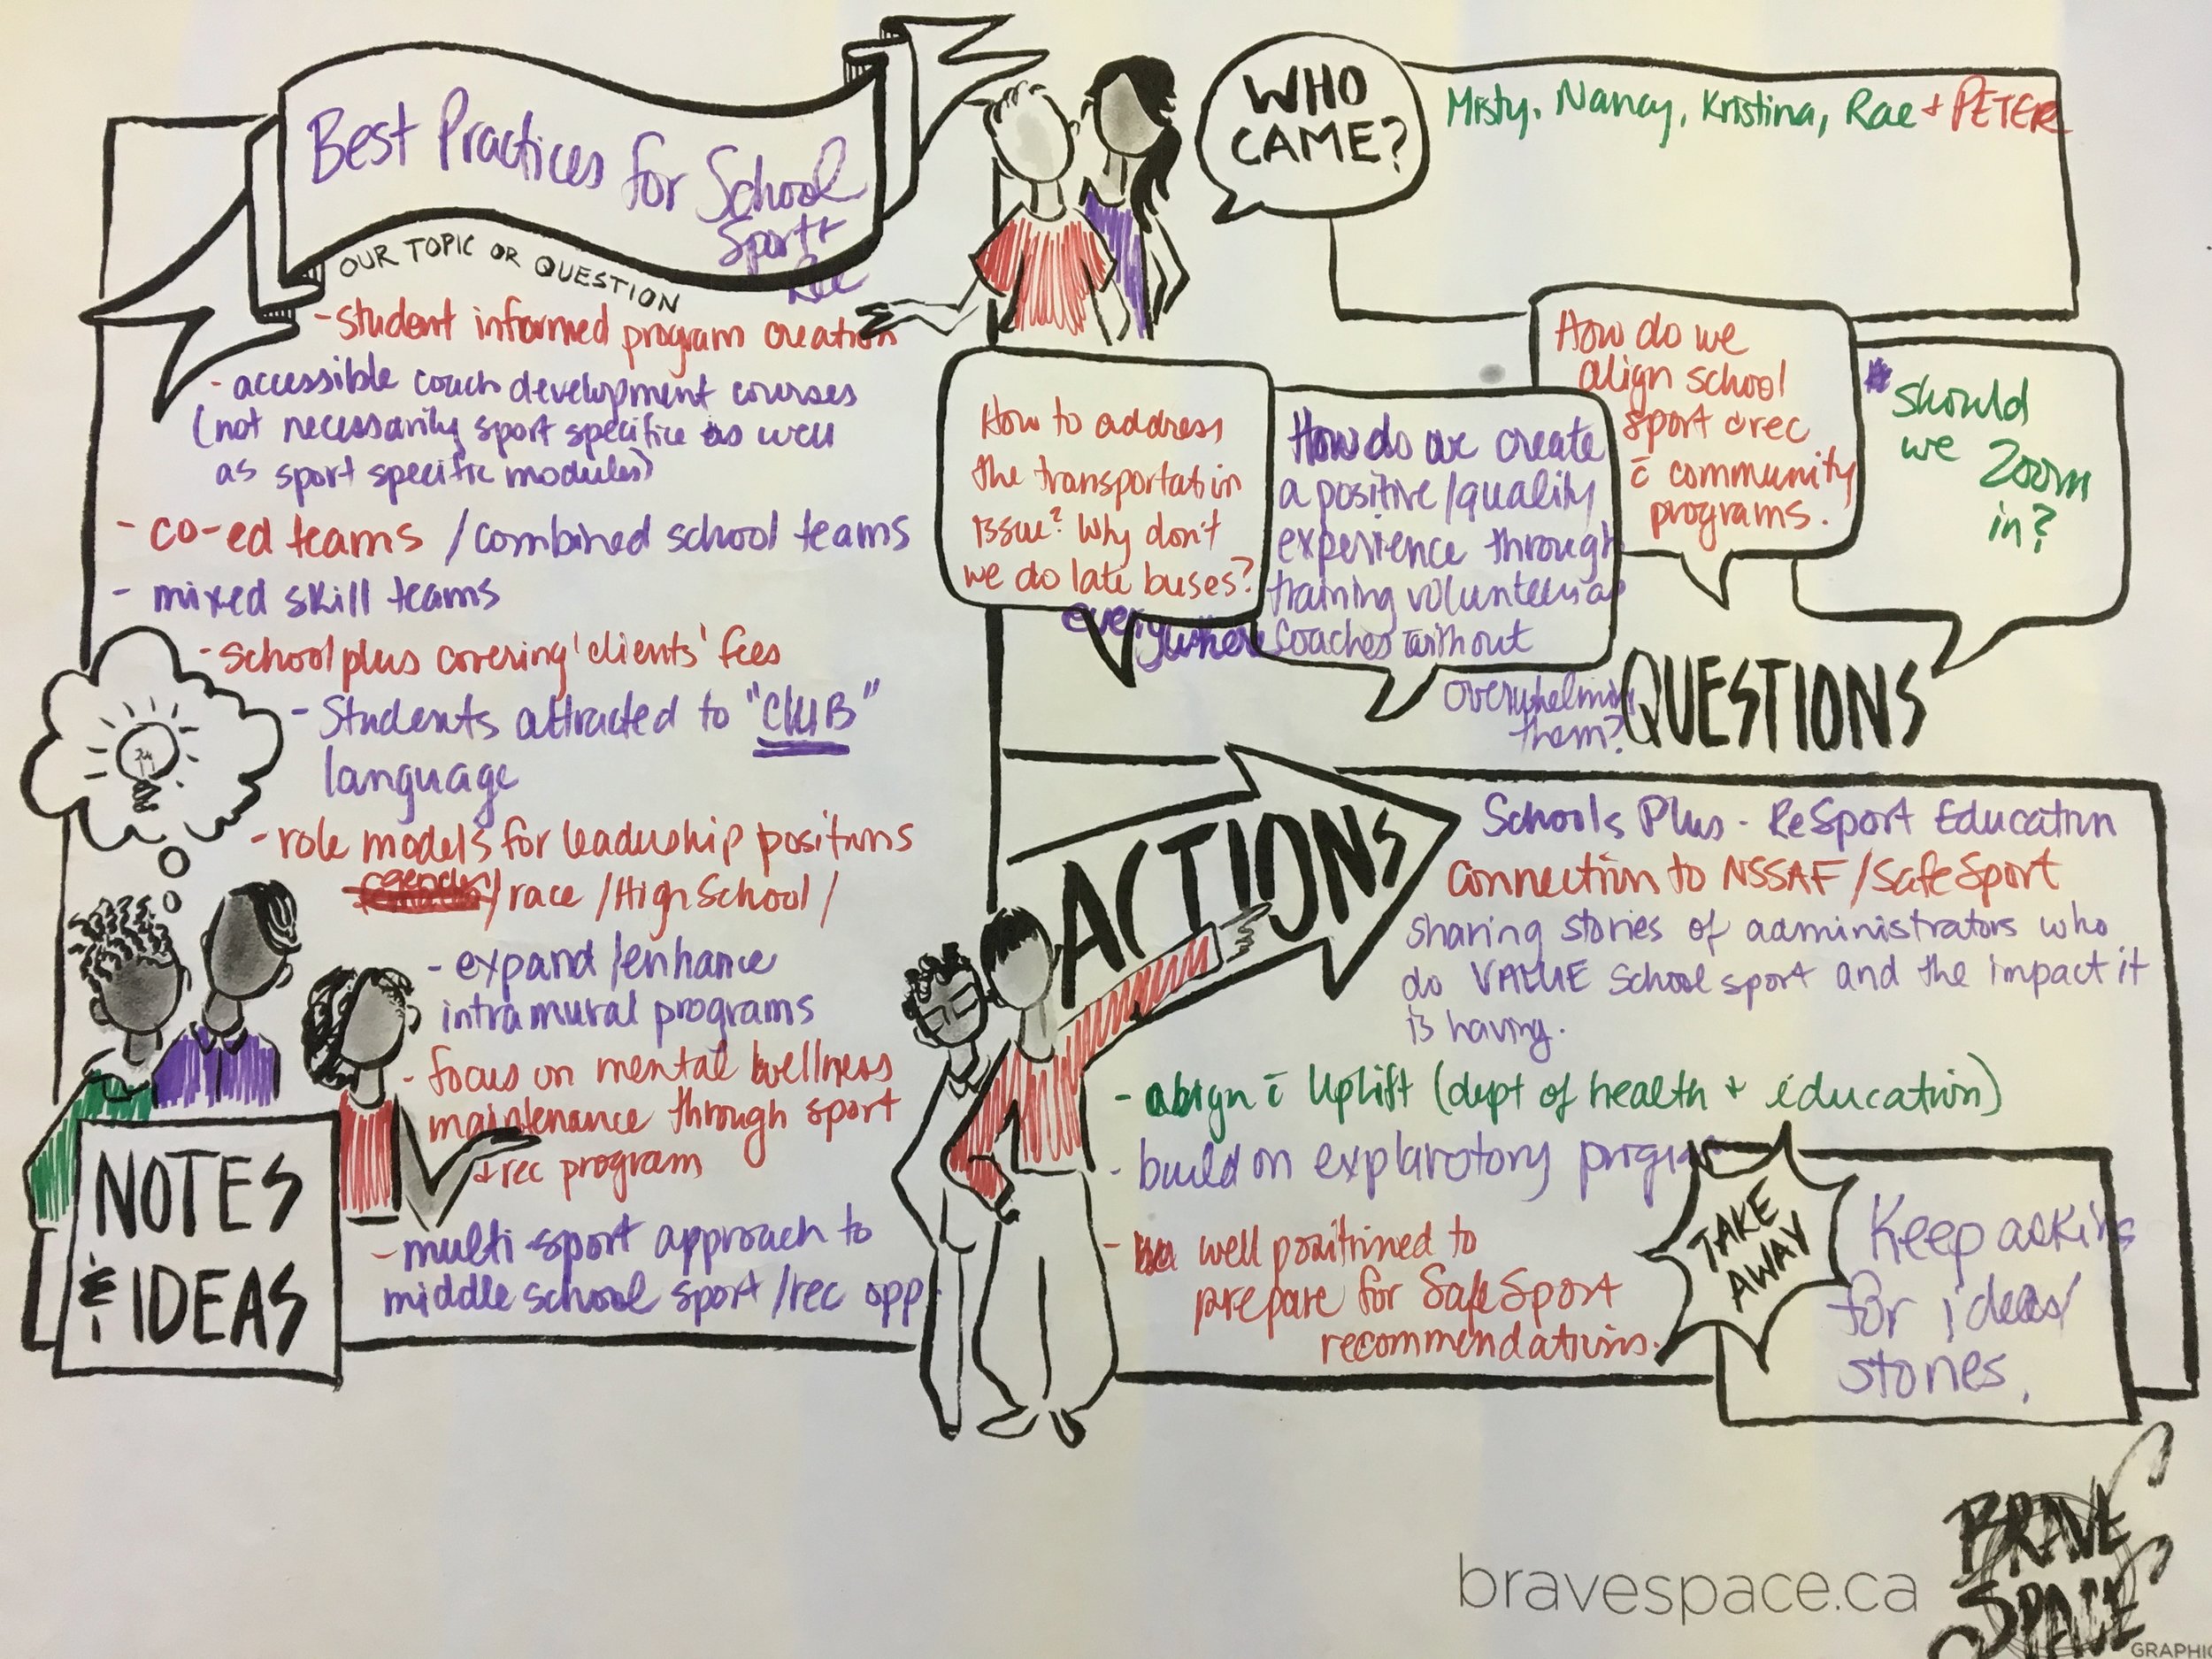 Best Practices for School
Sport +
Rec
OUR TOPIC OR QUESTION
- student informed program creation
- accessible coach development courses
(not necessarily sport specific as well
as sport specific modules)
- co-ed teams / combined school teams
- mixed skill teams
- school plus covering 'clients' fees
- Students attracted to "CLUB"
language
- role models for leadership positions
/ race / High School /
- expand / enhance
intramural programs
- focus on mental wellness
maintenance through sport
+ rec program
- multi-sport approach to
middle school sport / rec opp
NOTES
& IDEAS
WHO
CAME?
Misty, Nancy, Kristina, Rae + PETER
How to address
the transportation
issue? Why don't
we do late buses?
everywhere
How do we create
a positive/quality
experience through
training volunteers as
coaches without
overwhelming
them?
How do we
align school
sport & rec
c̄ community
programs.
* Should
we Zoom
in?
QUESTIONS
ACTIONS
Schools Plus - ReSport Education
Connection to NSSAF / SafeSport
Sharing stories of administrators who
do VALUE School sport and the impact it
is having.
- align c̄ Uplift (dept of health + education)
- build on explorotory program
- well positioned to
prepare for SafeSport
recommendations.
TAKE
AWAY
Keep asking
for ideas/
stories.
bravespace.ca
BRAVE
SPACE
GRAPHIC